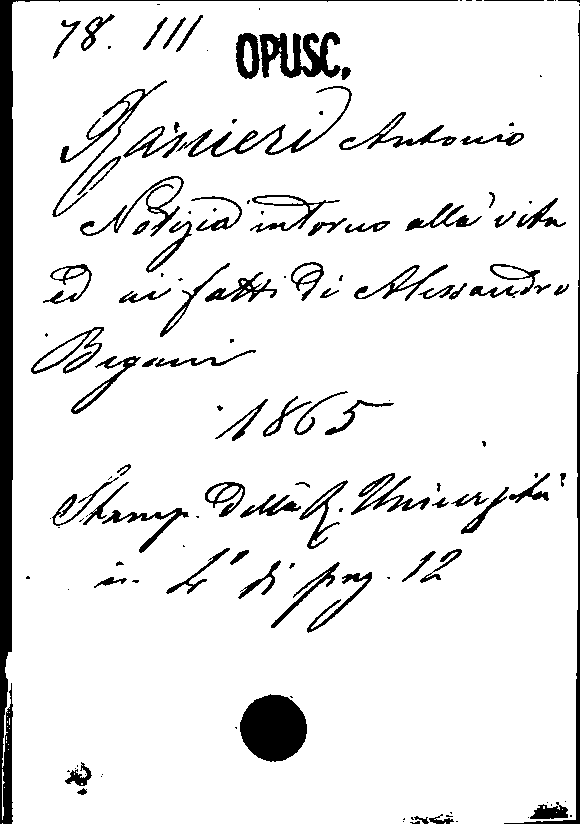 78. 111
OPUSC.
Ranieri Antonio
Notizia intorno alla vita
ed ai fatti di Alessandro
Begani
1865
Stamp. della R. Università
in 4° di pag. 12